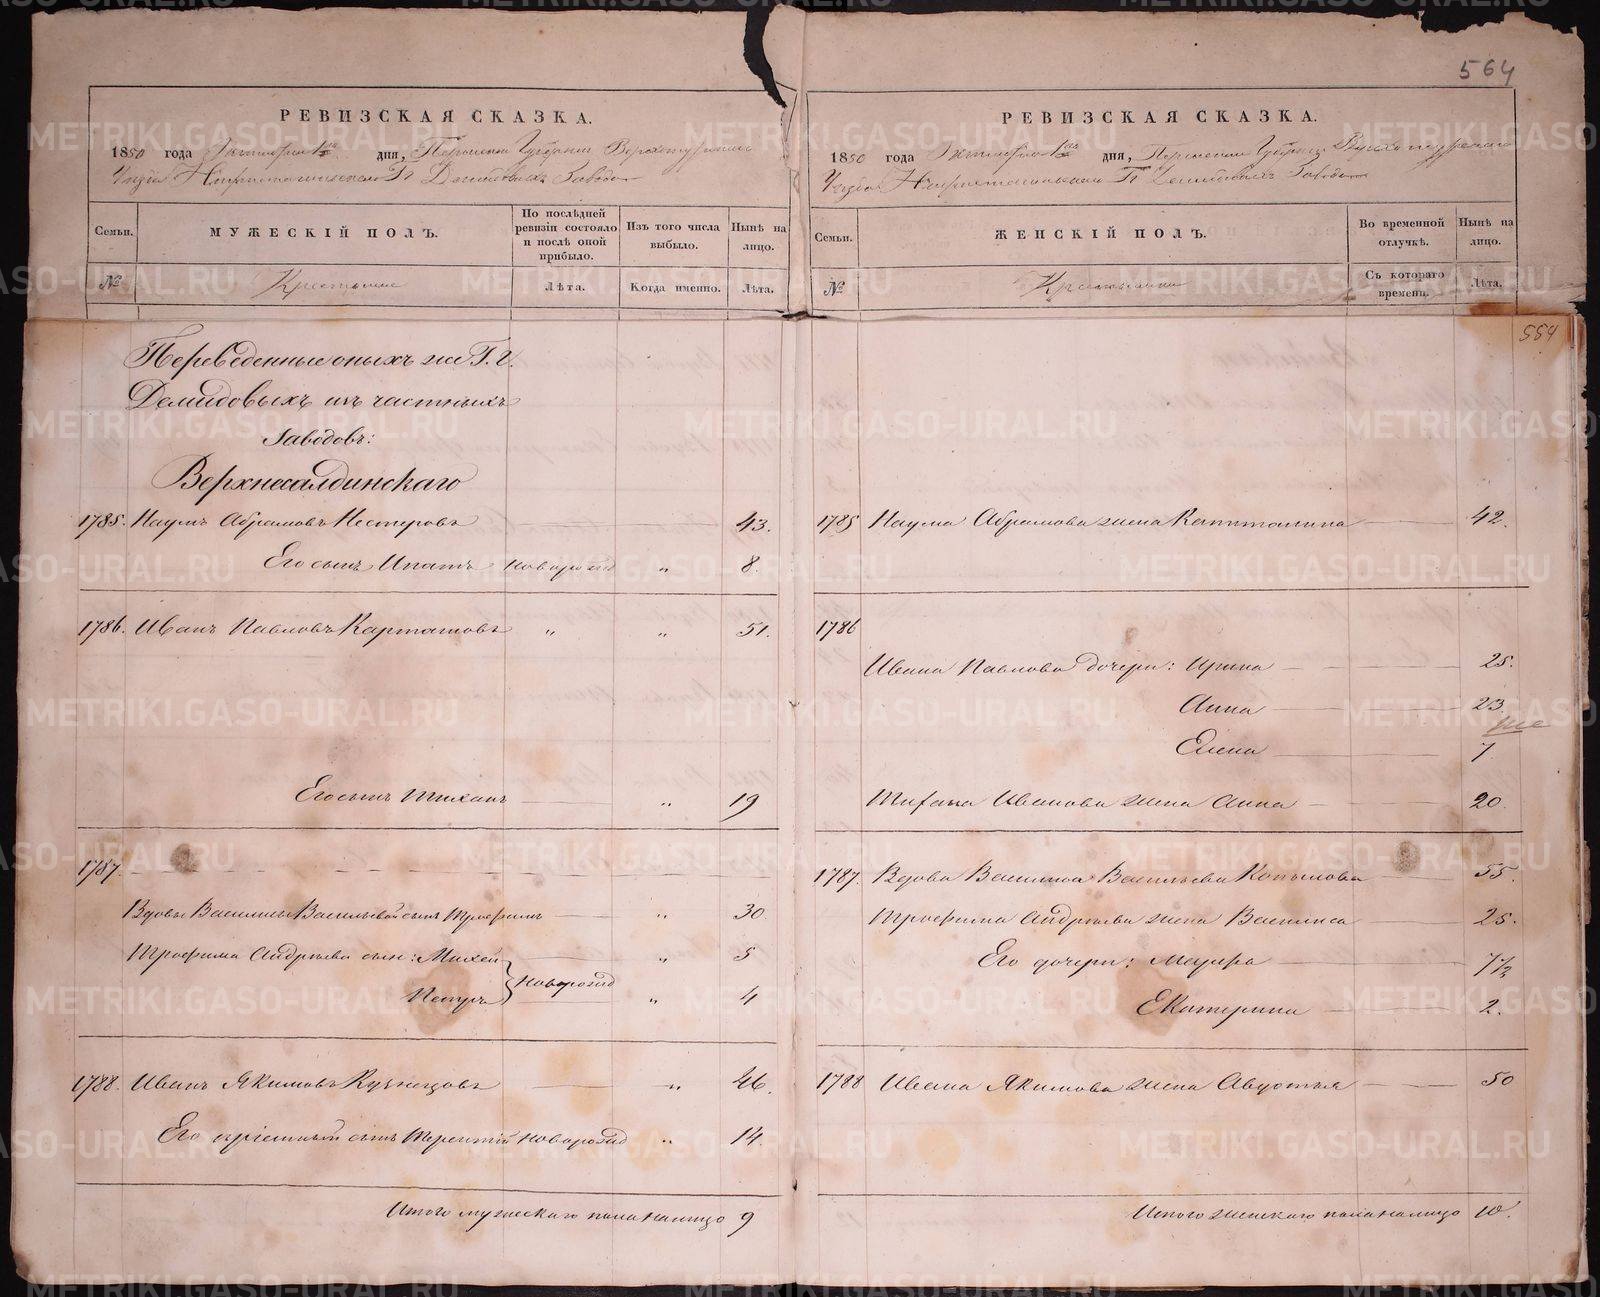 564
РЕВИЗСКАЯ СКАЗКА.
1850 года Октября 1го дня, Пермской Губернии Верхотурскаго
Уезда Нижнетагильскаго Гг Демидовыхъ Завода
Семьи. МУЖЕСКІЙ ПОЛЪ. По послѣдней ревизіи состояло и послѣ оной прибыло. Изъ того числа выбыло. Нынѣ на лицо.
№ Крестьяне Лѣта. Когда именно. Лѣта.
Переведенные оныхъ же Г.г.
Демидовыхъ изъ частныхъ
Заводовъ:
Верхнесалдинскаго
1785. Наумъ Абрамовъ Нестеровъ 43.
Его сынъ Ипатъ новорожд „ 8.
1786. Иванъ Павловъ Карташовъ „ „ 51.
Его сынъ Тиханъ „ 19
1787.
Вдовы Василисы Васильевой сынъ Трофимъ „ 30
Трофима Андреева сын: Михей „ 5
Петръ } новорожд „ 4
1788. Иванъ Якимовъ Кузнецовъ „ 46.
Его пріемный сынъ Терентій новорожд „ 14.
Итого мужескаго пола налицо 9
РЕВИЗСКАЯ СКАЗКА.
1850 года Октября 1го дня, Пермской Губерніи Верхотурскаго
Уезда Нижнетагильскаго Гг Демидовыхъ Завода
Семьи. ЖЕНСКІЙ ПОЛЪ. Во временной отлучкѣ. Нынѣ на лицо.
№ Крестьянки Съ котораго времени. Лѣта.
554
1785 Наума Абрамова жена Капиталина 42.
1786
Ивана Павлова дочери: Ирина 25.
Анна 23
Елена 7
Тихана Иванова жена Анна 20.
1787. Вдова Василиса Васильева Копылова 55.
Трофима Андреева жена Василиса 25.
Его дочери: Мавра 7½
Екатерина 2.
1788 Ивана Якимова жена Авдотья 50
Итого женскаго пола налицо 10.
METRIKI.GASO-URAL.RU